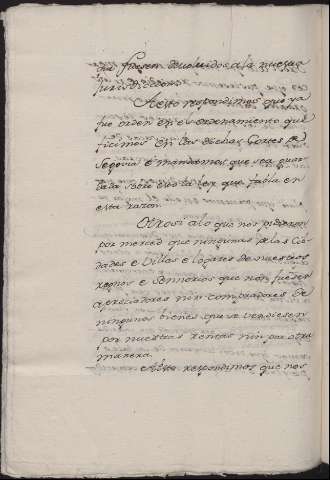 que fuesen devolvidos a la nuestra
Jurisdiccion.
A esto respondimos que ya
fue orden en el ordenamiento que
ficimos en las dichas Cortes de
Segovia e mandamos que sea guar
dada sobre esto la ley que fabla en
esta razon.
Otrosi a lo que nos pidieron
por merced que ningunas de las Cib
dades e Villas e logares de nuestros
regnos e Sennorios que non fuesen
apreciadores nin compradores de
ningunos bienes que se vendiesen
por nuestras rentas nin por otra
manera.
A esto respondimos que nos